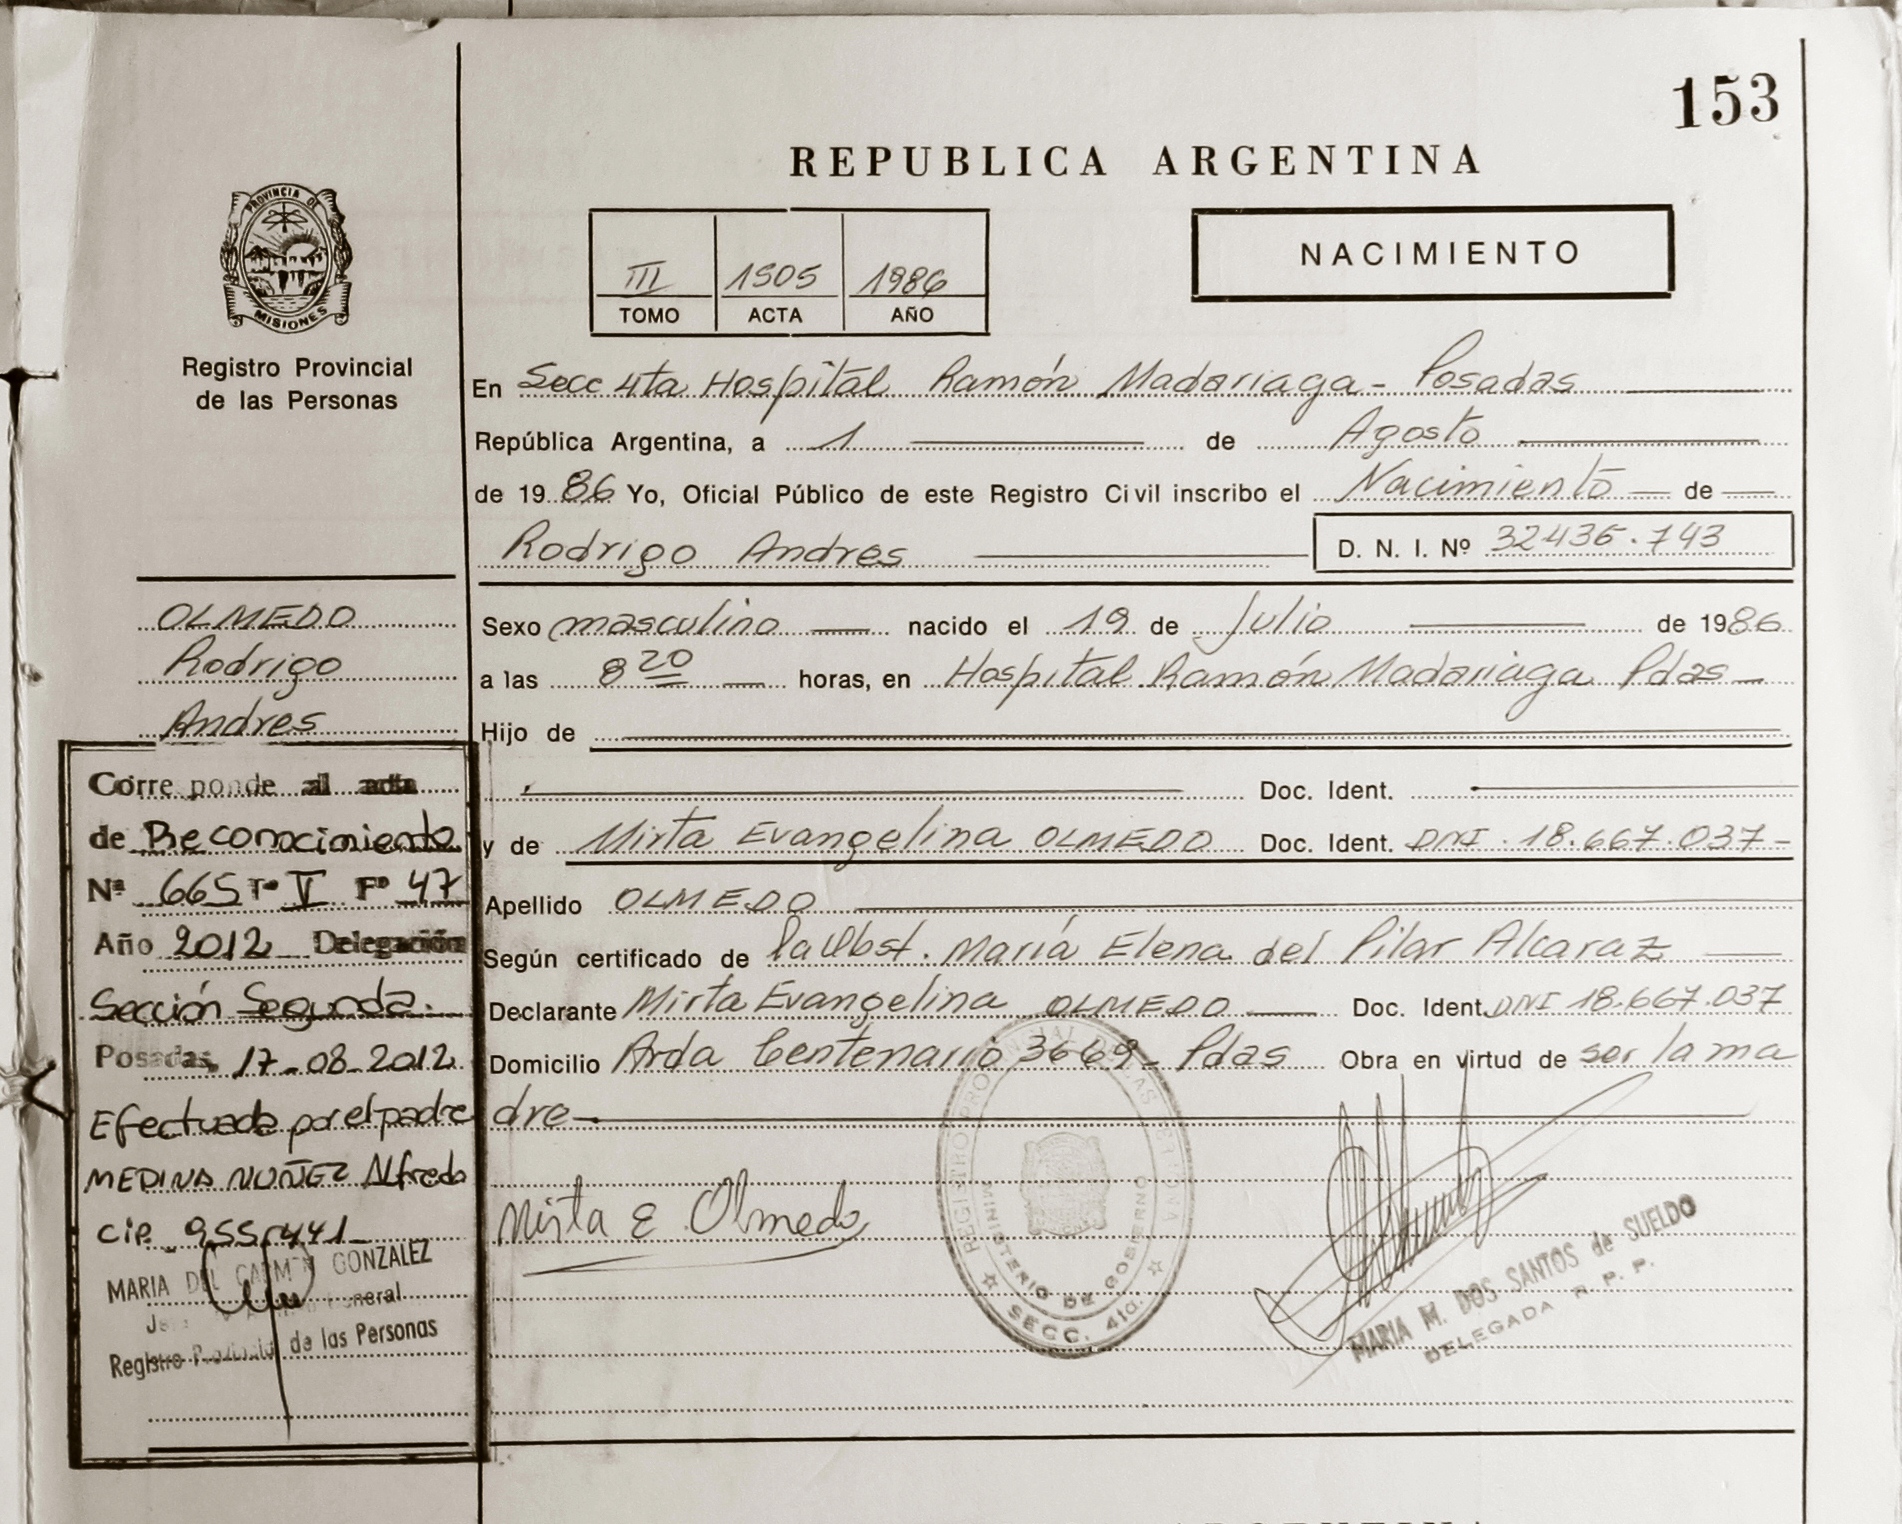 153
REPUBLICA ARGENTINA
PROVINCIA DE
MISIONES
Registro Provincial
de las Personas
III 1505 1986
TOMO ACTA AÑO
NACIMIENTO
En Secc 4ta Hospital Ramón Madariaga - Posadas
República Argentina, a 1 de Agosto
de 1986 Yo, Oficial Público de este Registro Civil inscribo el Nacimiento de
Rodrigo Andres D. N. I. Nº 32435.743
OLMEDO
Rodrigo
Andres
Sexo masculino nacido el 19 de Julio de 1986
a las 8 20 horas, en Hospital Ramón Madariaga Pdas
Hijo de
Doc. Ident.
y de Mirta Evangelina OLMEDO Doc. Ident. DNI. 18.667.037-
Apellido OLMEDO
Según certificado de la Obst. María Elena del Pilar Alcaraz
Declarante Mirta Evangelina OLMEDO Doc. Ident. DNI 18.667.037
Domicilio Avda Centenario 3669 - Pdas Obra en virtud de ser la ma
dre
Corresponde al acta
de Reconocimiento
Nª 665 Tº V Fº 47
Año 2012 Delegación
Sección Segunda.
Posadas, 17-08-2012
Efectuada por el padre
MEDINA NUÑEZ Alfredo
CIP. 955.441
MARIA DEL CARMEN GONZALEZ
General
Registro Provincial de las Personas
Mirta E Olmedo
REGISTRO PROVINCIAL DE LAS PERSONAS
MINISTERIO DE GOBIERNO
SECC. 4ta.
MARIA M. DOS SANTOS de SUELDO
DELEGADA R. P. P.